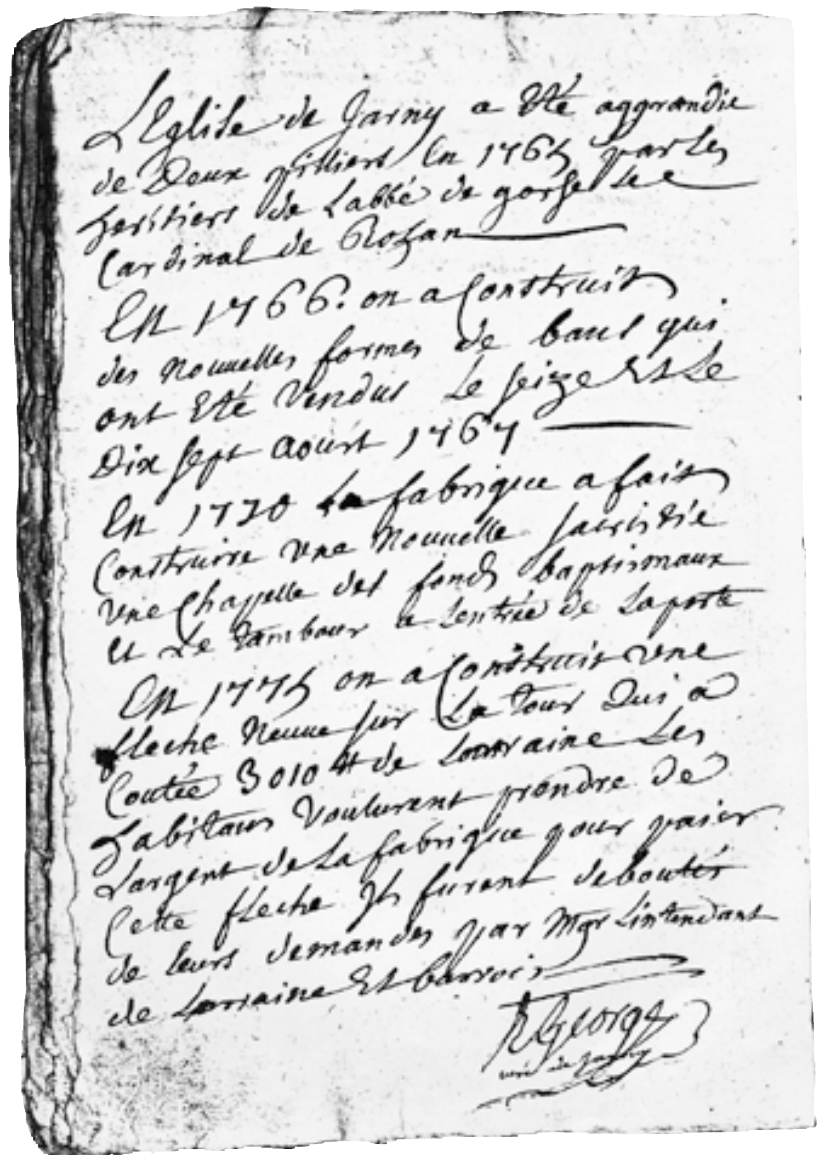 L'Eglise de Jarny a Eté aggrandie
de Deux pilliers En 1765 par Les
heritiers de Labbé de gorse Le
Cardinal de Rohan
En 1766. on a Construit
des nouvelles formes de bans qui
ont Eté vendus Le seize Et Le
Dix sept aoust 1767
En 1770 La fabrique a fait
Construire une Nouvelle sacristie
une Chapelle des fonds baptismaux
et Le Tambour a Lentrée de La porte
En 1775 on a Construit une
fleche neuve sur La Tour Qui a
Coutée 3010 ₶ de Lorraine Les
habitans voulurent prendre De
Largent de La fabrique pour paier
Cette fleche Ils furent deboutés
de leurs demandes par Mgr Lintendant
de Lorraine Et barrois
George
curé de Jarny